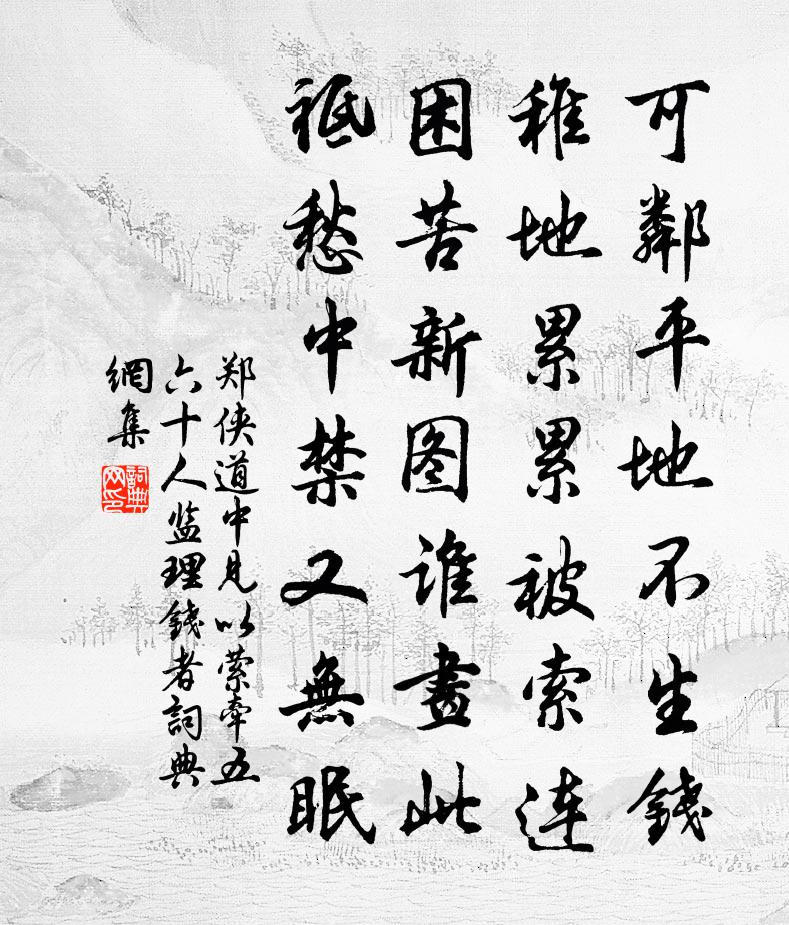 可鄰平地不生錢
稚地累累被索连
困苦新图谁畫此
祗愁中禁又無眠
郑侠道中見以萦牵五
六十人监理錢者詞典
網集
詞典
网印